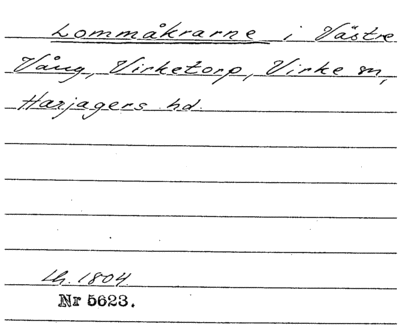 Lommåkrarne i Västre
Vång, Virketorp, Virke sn,
Harjagers hd.
Lh. 1804
Nr 5623.